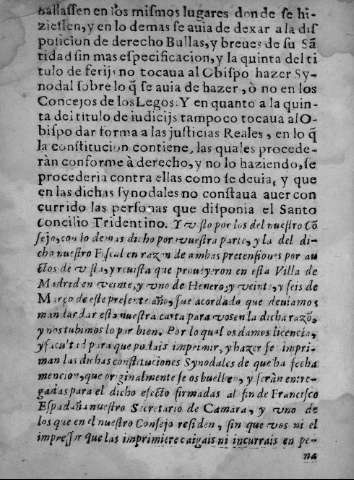 hallassen en los mismos lugares donde se hi-
ziessen, y en lo demas se auia de dexar a la dis
posicion de derecho Bullas, y breues de su Sã
tidad sin mas especificacion, y la quinta del ti
tulo de ferijs no tocaua al Obispo hazer Sy-
nodal sobre lo q̃ se auia de hazer, ò no en los
Concejos de los Legos. Y en quanto a la quin-
ta del titulo de iudicijs tampoco tocaua al O-
bispo dar forma a las justicias Reales, en lo q̃
la constitucion contiene, las quales procede-
ràn conforme à derecho, y no lo haziendo, se
procederia contra ellas como se deuia, y que
en las dichas synodales no constaua auer con
currido las personas que disponia el Santo
Concilio Tridentino. Y visto por los del nuestro Cõ
sejo, con lo demas dicho por vuestra parte, y la del di-
cho nuestro Fiscal en razon de ambas pretensiones por au
ctos de vista, y reuista que proueyron en esta Villa de
Madrid en veinte, y vno de Henero, y veinte, y seis de
Março de este presente año, fue acordado que deuiamos
mandar dar esta nuestra carta para vos en la dicha razõ,
y nos tubimos lo por bien. Por lo qual os damos licencia,
y facultad para que podais imprimir, y hazer se impri-
man las dichas constituciones Synodales de que ha fecha
mencion, que originalmente se os buelben, y seràn entre-
gadas para el dicho efecto firmadas al fin de Francisco
Espadaña nuestro Secretario de Camara, y vno de
los que en el nuestro Consejo residen, sin que vos ni el
impressor que las imprimiere caigais ni incurrais en pe-
na